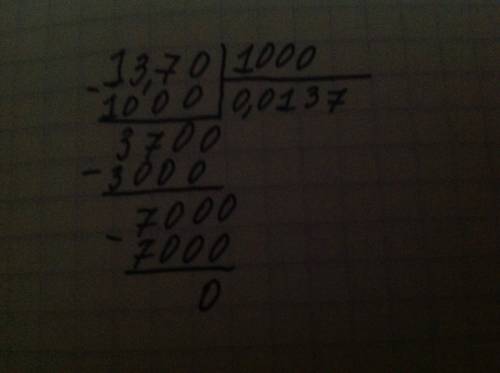 13,70 | 1000
- 1000 | 0,0137
3700
- 3000
7000
- 7000
0